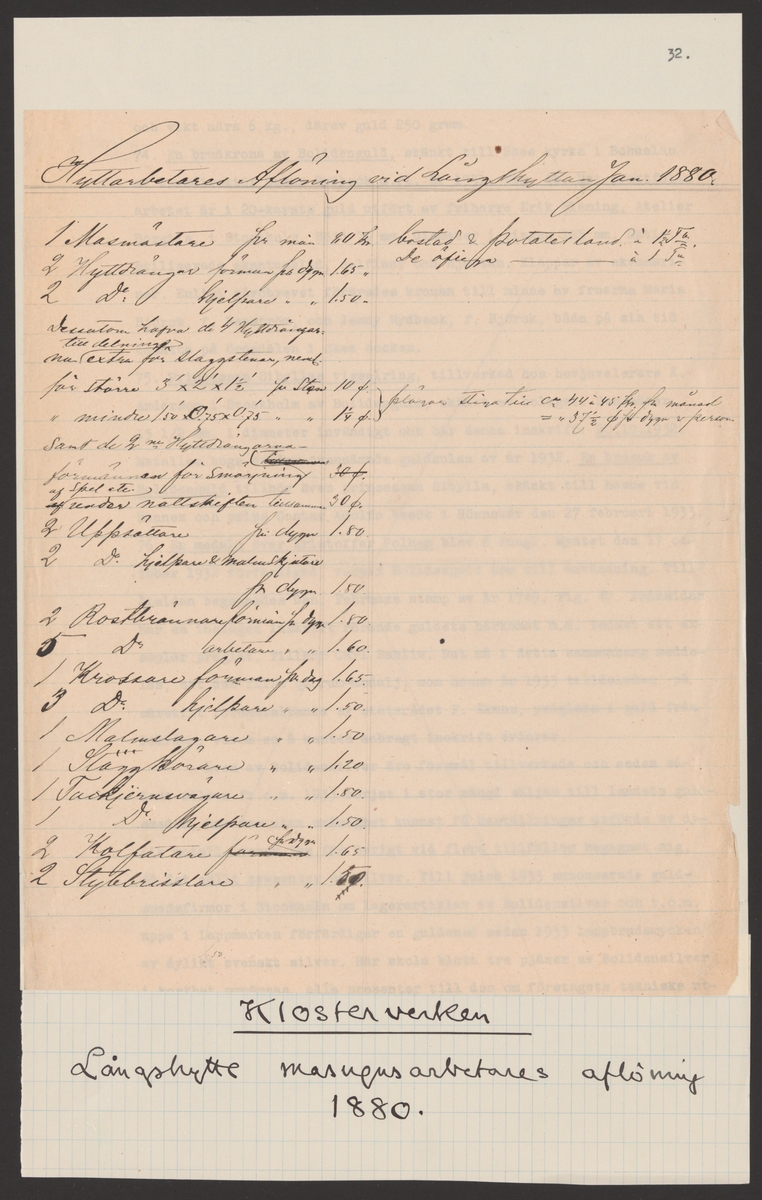 32.
Hyttarbetares Aflöning vid Långshyttan Jan. 1880.
1 Masmästare pr mån 80 Kr. bostad & potatesland à 1½ Tn.
2 Hyttdrängar förman pr dygn 1.65 „ De öfriga — à 1 Tn
2 Do hjelpare „ „ 1.50 „
Dessutom hafva de 4 Hyttdrängar-
na extra tilldelning för slaggstenar, neml.
för större 3' x 2' x 1½' pr Sten 10 ö.
„ mindre 1'50 x 0'75 x 0'75 „ „ 1¼ ö. plägar stiga till ca 44 à 45 Kr. pr månad
= „ 37½ ö pr dygn & person
samt de 2ne Hyttdrängarna
förmännen för smörjning 30 ö.
af spel etc.
under nattskiften tillsamman 30 ö.
2 Uppsättare pr dygn 1.80.
2 Do hjelpare & Malmskjutare
pr dygn 1.50
2 Rostbrännare förmän pr dygn 1.80
5 Do arbetare „ „ 1.60.
1 Krossare förman pr dag 1.65
3 Do hjelpare „ „ 1.50.
1 Malmslagare „ „ 1.50
1 Slaggkörare „ „ 1.20
1 Tackjernsvägare „ „ 1.80.
1 Do hjelpare „ „ 1.50.
2 Kolfatare förmän pr dygn 1.65
2 Stybbrisslare „ „ 1.50.
Klosterverken
Långshytte masugnsarbetares aflöning
1880.